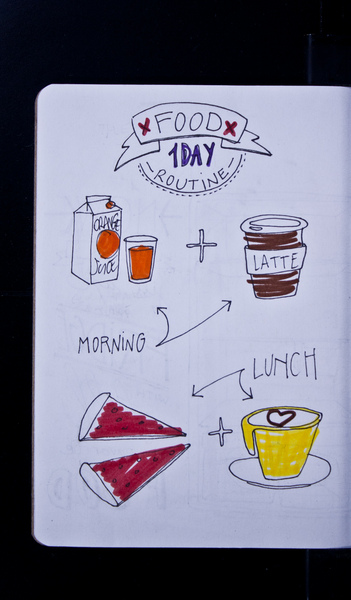 FOOD
1DAY
ROUTINE
ORANGE
JUICE
LATTE
MORNING
LUNCH